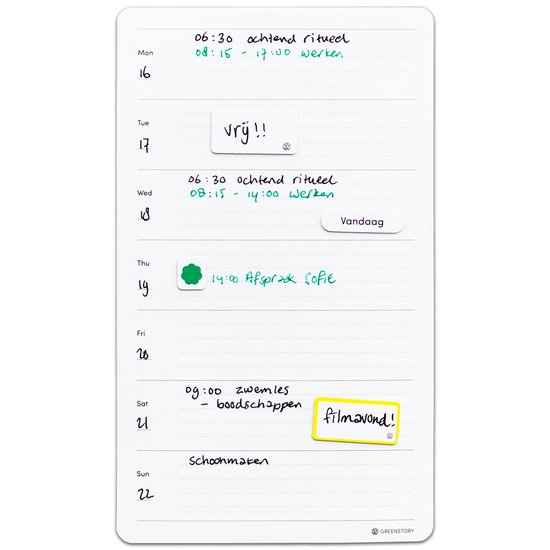 Mon
16
06:30 ochtend ritueel
08:15 - 17:00 werken
Tue
17
vrij!!
Wed
18
06:30 ochtend ritueel
08:15 - 14:00 werken
Vandaag
Thu
19
14:00 Afspraak Sofie
Fri
20
Sat
21
09:00 zwemles
- boodschappen
filmavond!
Sun
22
schoonmaken
GREENSTORY